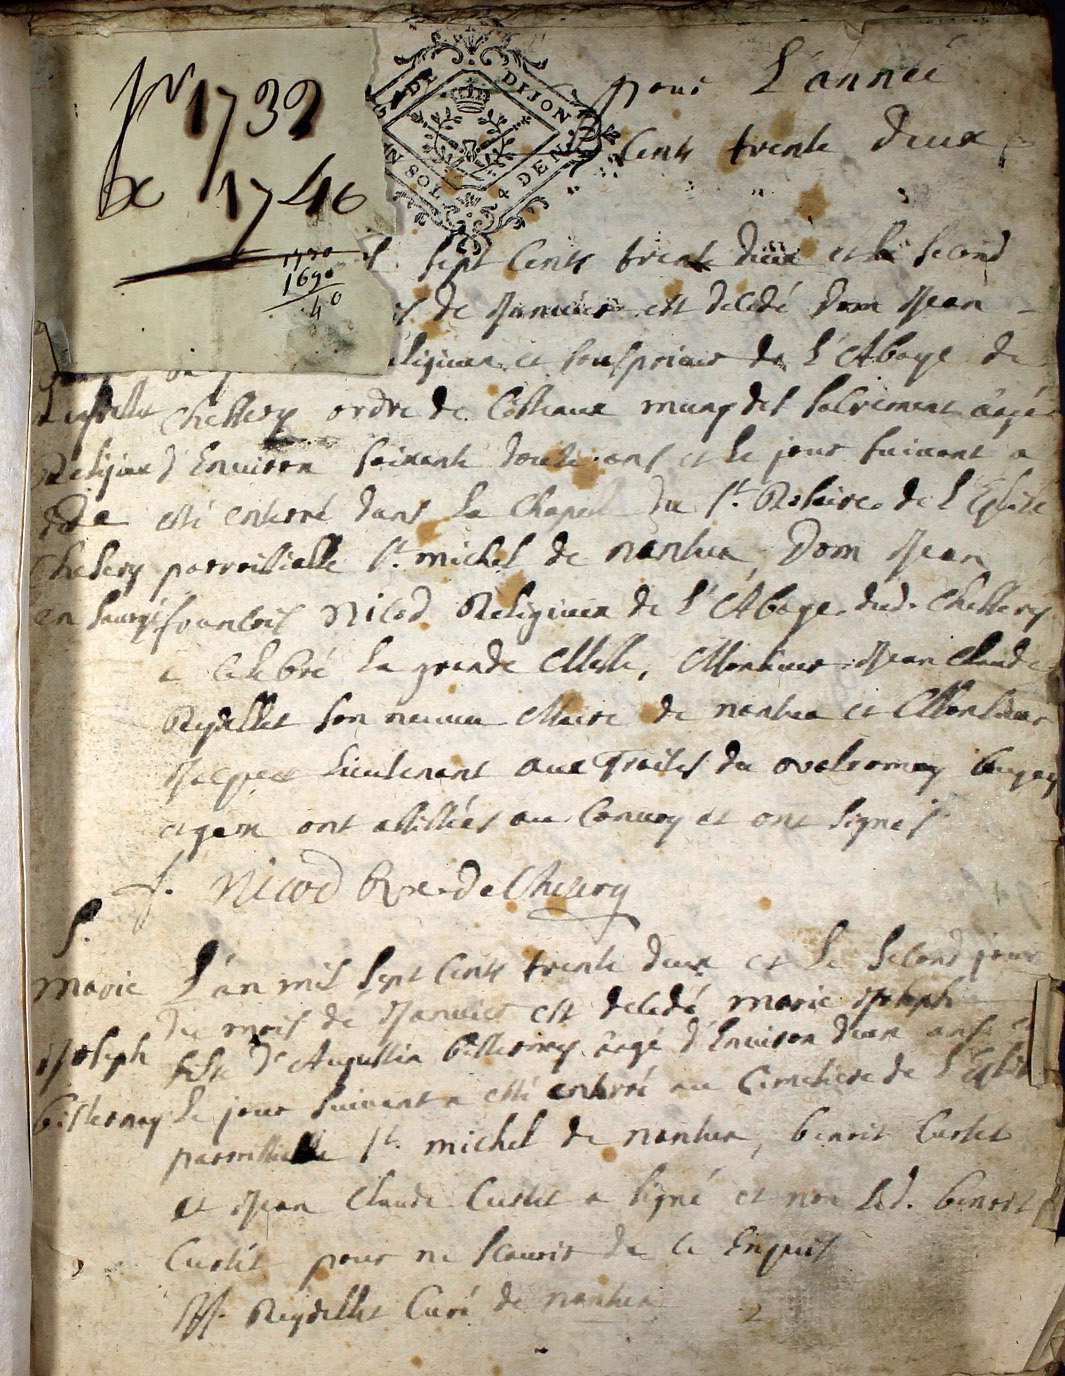 1732
1746
1730
1690
40
DE DIJON
SOL 4 DEN
pour L'année
Cents trente deux
sept Cents trente deux et le second
de Janvier est decedé Dom Jean
Religieux et sousprieur de L'Abaye de
Reydellet Chessery ordre de Citteaux muny des sacrement âagé
Religieux d'Environ soixante douze ans et le jour suivant a
de esté enterré dans la Chapelle du St. Rosaire de L'Eglise
Chesery parroissialle St. michel de nantua, Dom Jean
en françois Nicod Religieux de L'Abaye dud. Chessery
a Celebré la grande Messe, Monsieur Jean Claude
Reydellet son neveu Maire de nantua et Monsieur
Lieutenant aux Traites du valromey bugey
et gex ont assistés au Convoy et ont signés
f. Nicod de Chesery
S.
marie L'an mil sept Cents trente deux et Le second jour
du mois de Janvier est decedé marie Joseph
Joseph fille d'Augustin âagé d'Environ deux ans et
Le jour suivant a esté enterré au Cimetiere de L'Eglise
parroissialle St. michel de nantua, benoit Curtet
et Jean Claude Curtet a signé et non led. benoit
Curtet pour ne scavoir de ce Enquis
Reydellet Curé de nantua
2